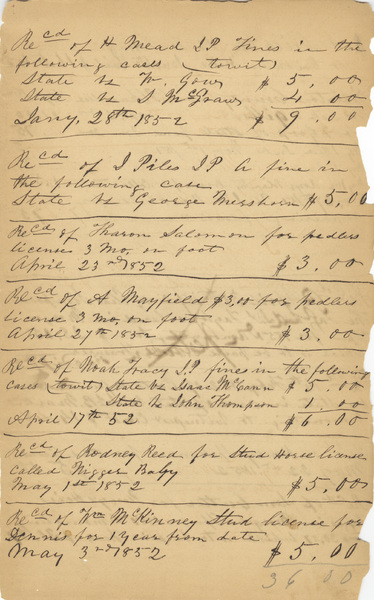 Recd of H Mead J.P Fines in the
following cases (towit)
State vs W. Gow $ 5.00
State vs J McGraw 4 00
Jany. 28th 1852 $ 9.00
Recd of J Piles J.P A fine in
the following case
State vs George Mershorn $5,00
Recd of Tharon Salomon for pedlers
license 3 Mo, on foot
April 23rd 1852 $ 3.00
Recd of A Mayfield $3,00 for pedlers
license 3 mo, on foot
April 27th 1852 $ 3.00
Recd of Noah Tracy J.P fines in the following
cases (towit) State vs Isaac McCann $ 5.00
State vs John Thompson 1.00
April 17th 52 $ 6.00
Recd of Rodney Reed for Stud Horse license
called Nigger Baby
May 1st 1852 $ 5.00
Recd of Wm McKinney Stud license for
Dennis for 1 year from date
May 3rd 1852 $ 5.00
36 00